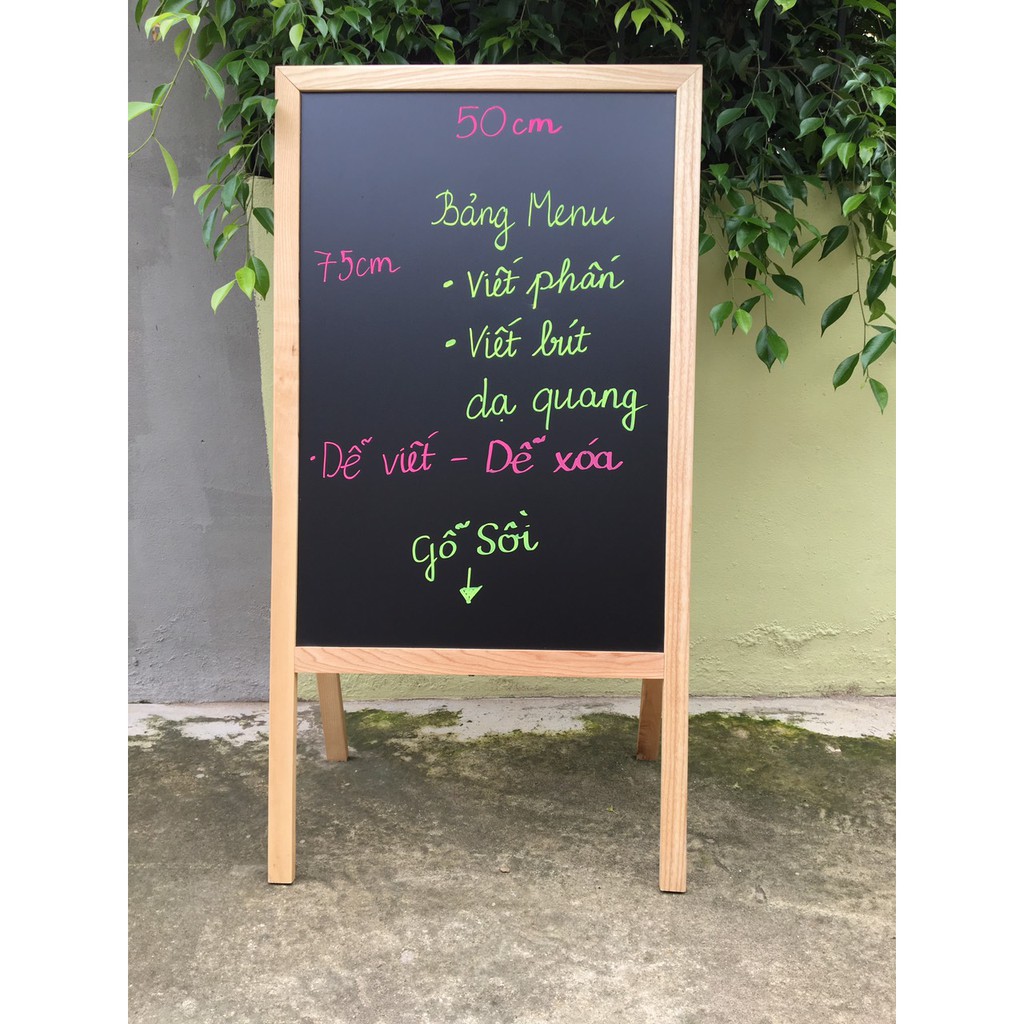 50cm
Bảng Menu
75cm
• Viết phấn
• Viết bút
dạ quang
• Dễ viết - Dễ xóa
Gỗ Sồi